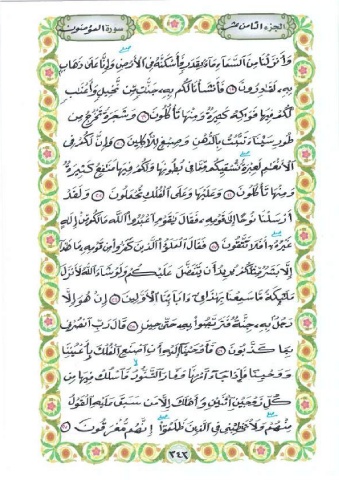 الجزء الثامن عشر
سورة المؤمنون
وَأَنزَلْنَا مِنَ السَّمَاءِ مَاءً بِقَدَرٍ فَأَسْكَنَّاهُ فِي الْأَرْضِ وَإِنَّا عَلَىٰ ذَهَابٍ
بِهِ لَقَادِرُونَ ۝ فَأَنشَأْنَا لَكُم بِهِ جَنَّاتٍ مِّن نَّخِيلٍ وَأَعْنَابٍ
لَّكُمْ فِيهَا فَوَاكِهُ كَثِيرَةٌ وَمِنْهَا تَأْكُلُونَ ۝ وَشَجَرَةً تَخْرُجُ مِن
طُورِ سَيْنَاءَ تَنبُتُ بِالدُّهْنِ وَصِبْغٍ لِّلْآكِلِينَ ۝ وَإِنَّ لَكُمْ فِي
الْأَنْعَامِ لَعِبْرَةً نُّسْقِيكُم مِّمَّا فِي بُطُونِهَا وَلَكُمْ فِيهَا مَنَافِعُ كَثِيرَةٌ
وَمِنْهَا تَأْكُلُونَ ۝ وَعَلَيْهَا وَعَلَى الْفُلْكِ تُحْمَلُونَ ۝ وَلَقَدْ
أَرْسَلْنَا نُوحًا إِلَىٰ قَوْمِهِ فَقَالَ يَا قَوْمِ اعْبُدُوا اللَّهَ مَا لَكُم مِّنْ إِلَٰهٍ
غَيْرُهُ أَفَلَا تَتَّقُونَ ۝ فَقَالَ الْمَلَؤُا الَّذِينَ كَفَرُوا مِن قَوْمِهِ مَا هَٰذَا
إِلَّا بَشَرٌ مِّثْلُكُمْ يُرِيدُ أَن يَتَفَضَّلَ عَلَيْكُمْ وَلَوْ شَاءَ اللَّهُ لَأَنزَلَ
مَلَائِكَةً مَّا سَمِعْنَا بِهَٰذَا فِي آبَائِنَا الْأَوَّلِينَ ۝ إِنْ هُوَ إِلَّا
رَجُلٌ بِهِ جِنَّةٌ فَتَرَبَّصُوا بِهِ حَتَّىٰ حِينٍ ۝ قَالَ رَبِّ انصُرْنِي
بِمَا كَذَّبُونِ ۝ فَأَوْحَيْنَا إِلَيْهِ أَنِ اصْنَعِ الْفُلْكَ بِأَعْيُنِنَا
وَوَحْيِنَا فَإِذَا جَاءَ أَمْرُنَا وَفَارَ التَّنُّورُ فَاسْلُكْ فِيهَا مِن
كُلٍّ زَوْجَيْنِ اثْنَيْنِ وَأَهْلَكَ إِلَّا مَن سَبَقَ عَلَيْهِ الْقَوْلُ
مِنْهُمْ وَلَا تُخَاطِبْنِي فِي الَّذِينَ ظَلَمُوا إِنَّهُم مُّغْرَقُونَ ۝
٣٤٣